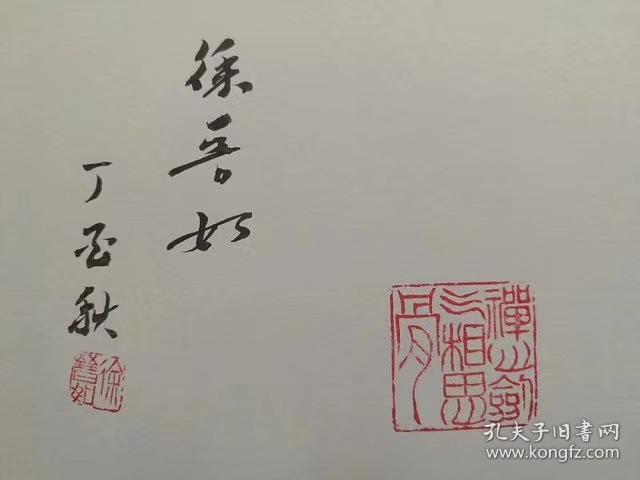 徐晋如
丁酉秋
徐晉如
禪心劍气相思骨
孔夫子旧书网
www.kongfz.com